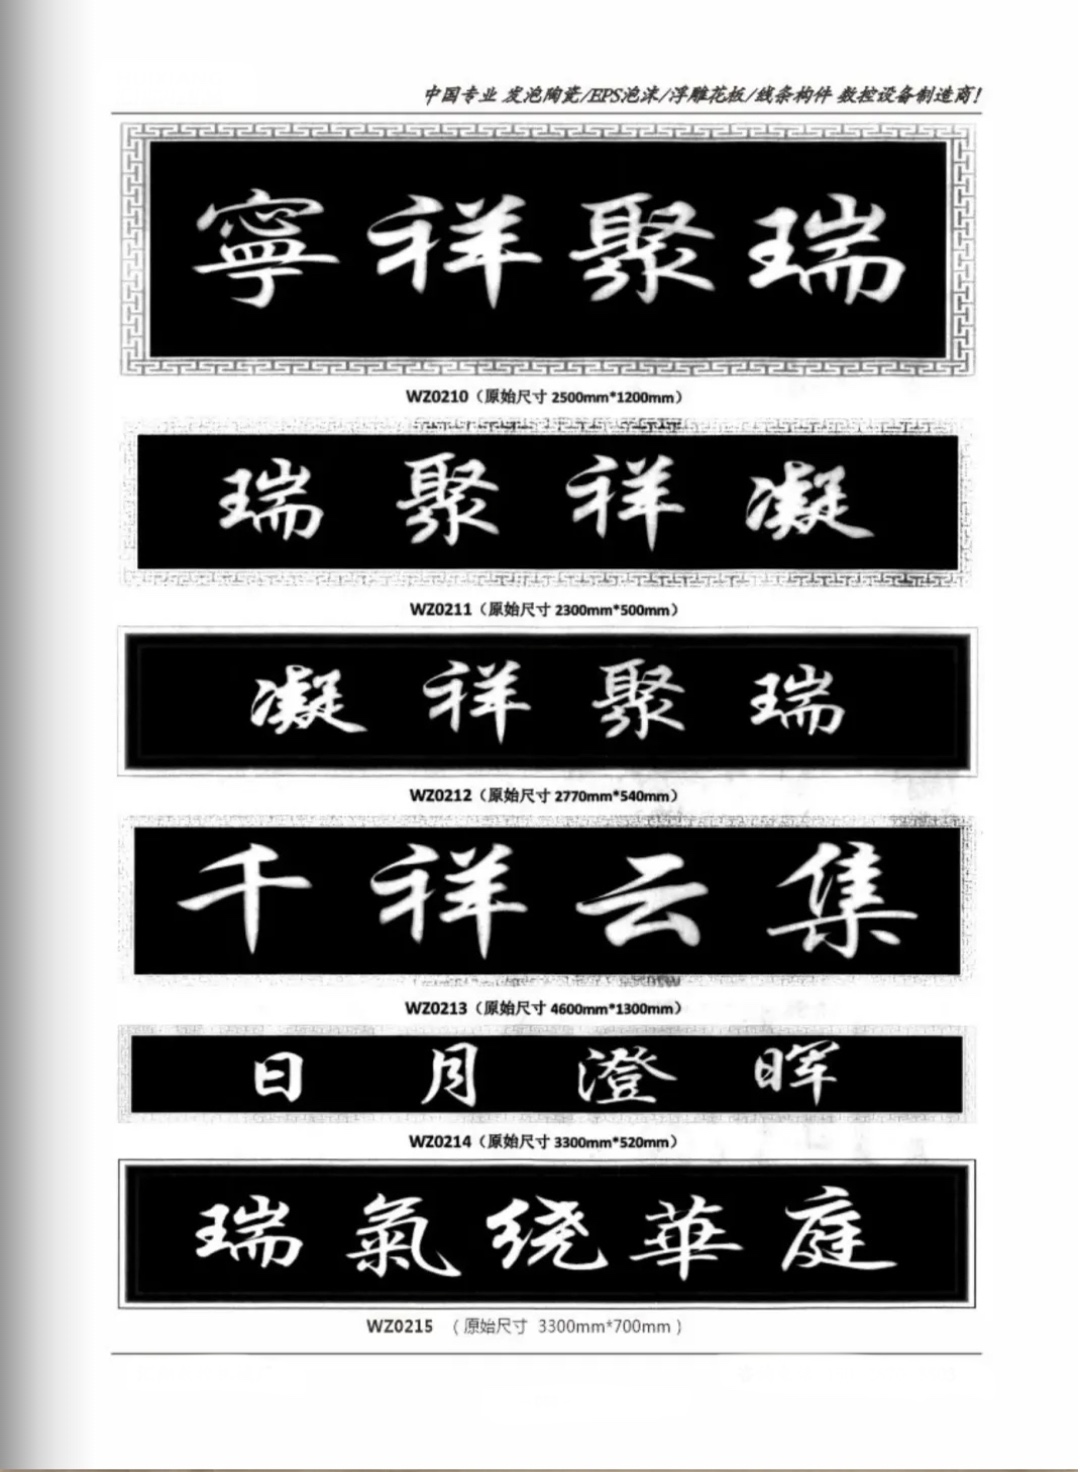 中国专业 发泡陶瓷/EPS泡沫/浮雕花板/线条构件 数控设备制造商!
寧祥聚瑞
WZ0210（原始尺寸 2500mm*1200mm）
瑞聚祥凝
WZ0211（原始尺寸 2300mm*500mm）
凝祥聚瑞
WZ0212（原始尺寸 2770mm*540mm）
千祥云集
WZ0213（原始尺寸 4600mm*1300mm）
日月澄晖
WZ0214（原始尺寸 3300mm*520mm）
瑞氣绕華庭
WZ0215 （原始尺寸 3300mm*700mm）